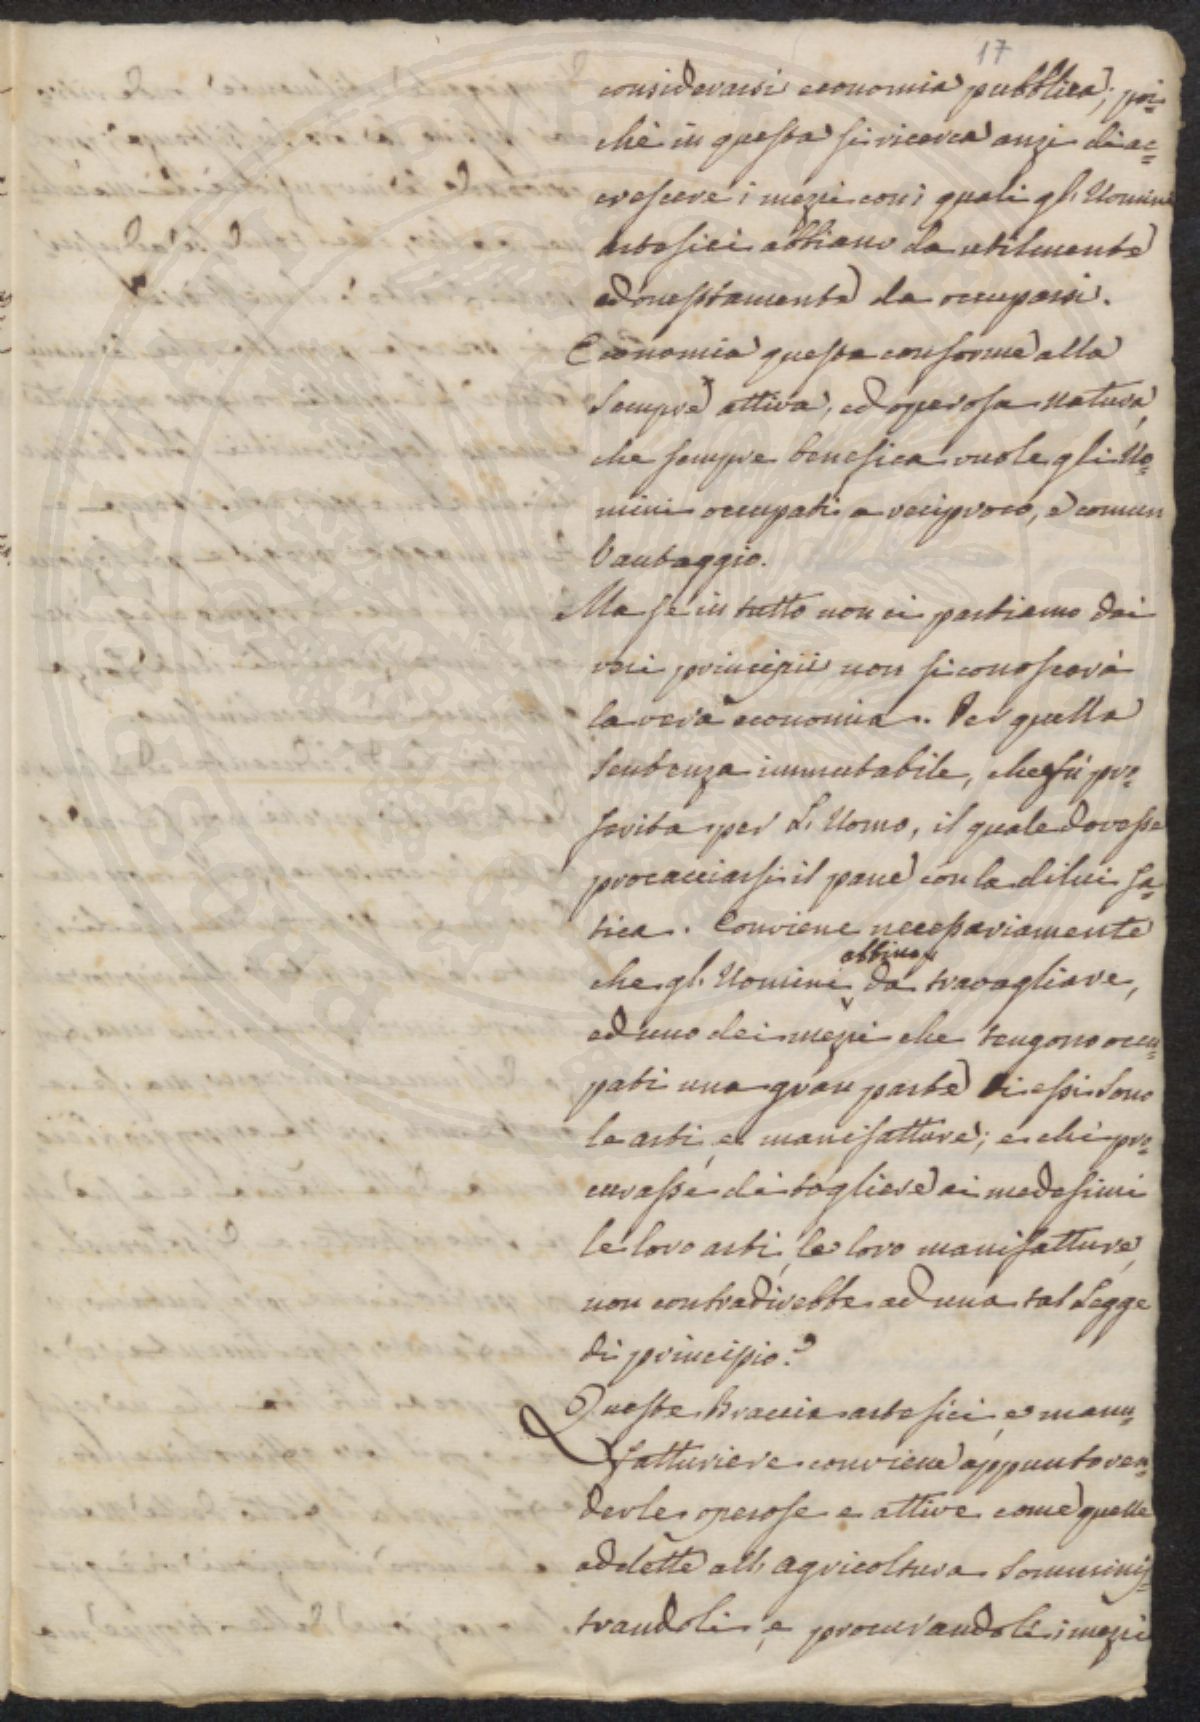 17
considerarsi economia pubblica; poi=
chè in questa si ricerca anzi di ac=
crescere i mezzi con i quali gl' Uomini
artefici abbiano da utilmente
ed onestamente da occuparsi.
Economia questa conforme alla
sempre attiva, ed operosa natura,
che sempre benefica vuole gli Uo=
mini occupati a reciproco, e comun
Vantaggio.
Ma se in tutto non ci partiamo dai
veri principii non si conoscerà
la vera economia. Per quella
sentenza immutabile, che fù pro=
ferita per L' Uomo, il quale dovesse
procacciarsi il pane con la di lui fa=
tica. Conviene necessariamente
abbino
che gl' Uomini da travagliare,
ed uno dei mezzi che tengono occu=
pati una gran parte di essi sono
le arti, e manifatture; e chi pro=
curasse di togliere ai medesimi
le loro arti, le loro manifatture,
non contradirebbe ad una tal Legge
di principio?
Queste Braccia artefici, e manu=
fatturiere conviene appunto ren=
derle operose e attive come quelle
addette all' agricoltura sommini=
strandoli, e procurandoli i mezzi